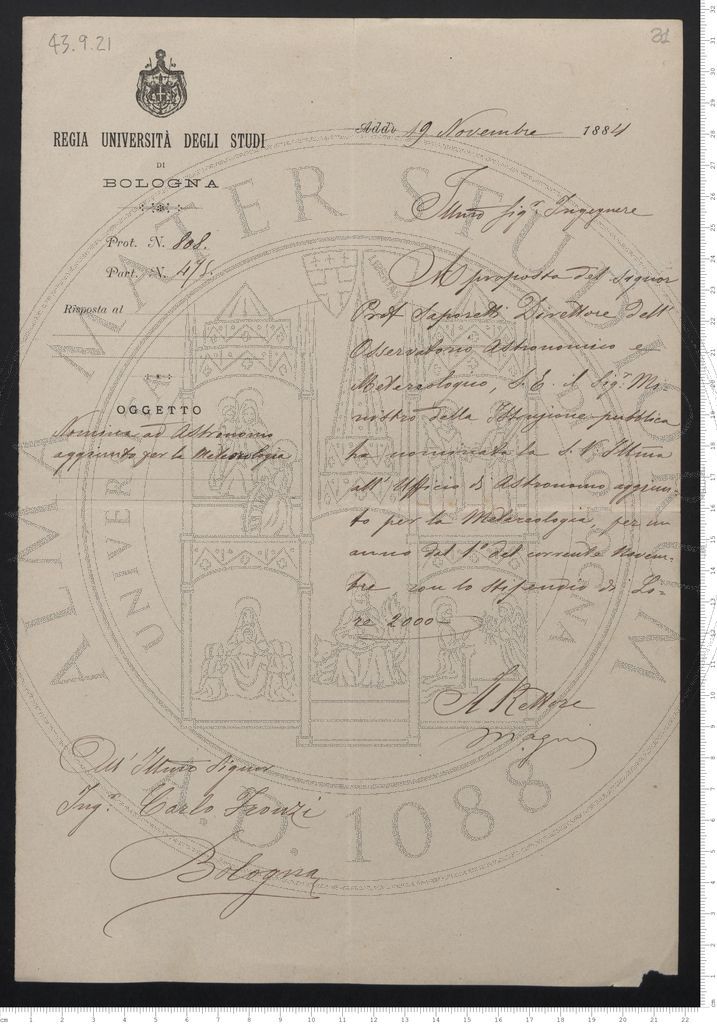 43.9.21
21
REGIA UNIVERSITÀ DEGLI STUDI
DI
BOLOGNA
Addì 19 Novembre 1884
Prot. N. 808.
Part. N. 475.
Risposta al
OGGETTO
Nomina ad Astronomo
aggiunto per la Meteorologia
Illmo Sigr. Ingegnere
A proposta del Signor
Prof Saporetti Direttore dell'
Osservatorio Astronomico e
Metereologico, S. E. il Sigr. Mi-
nistro della Istruzione pubblica
ha nominata la S. V. Illma
all' Ufficio di Astronomo aggiun-
to per la Metereologia, per un
anno dal 1° del corrente Novem-
bre con lo stipendio di Li-
re 2000
Il Rettore
Magni
All' Illmo Signor
Ingr. Carlo Fronzi
Bologna
ALMA MATER STUDIORUM
A.D. 1088